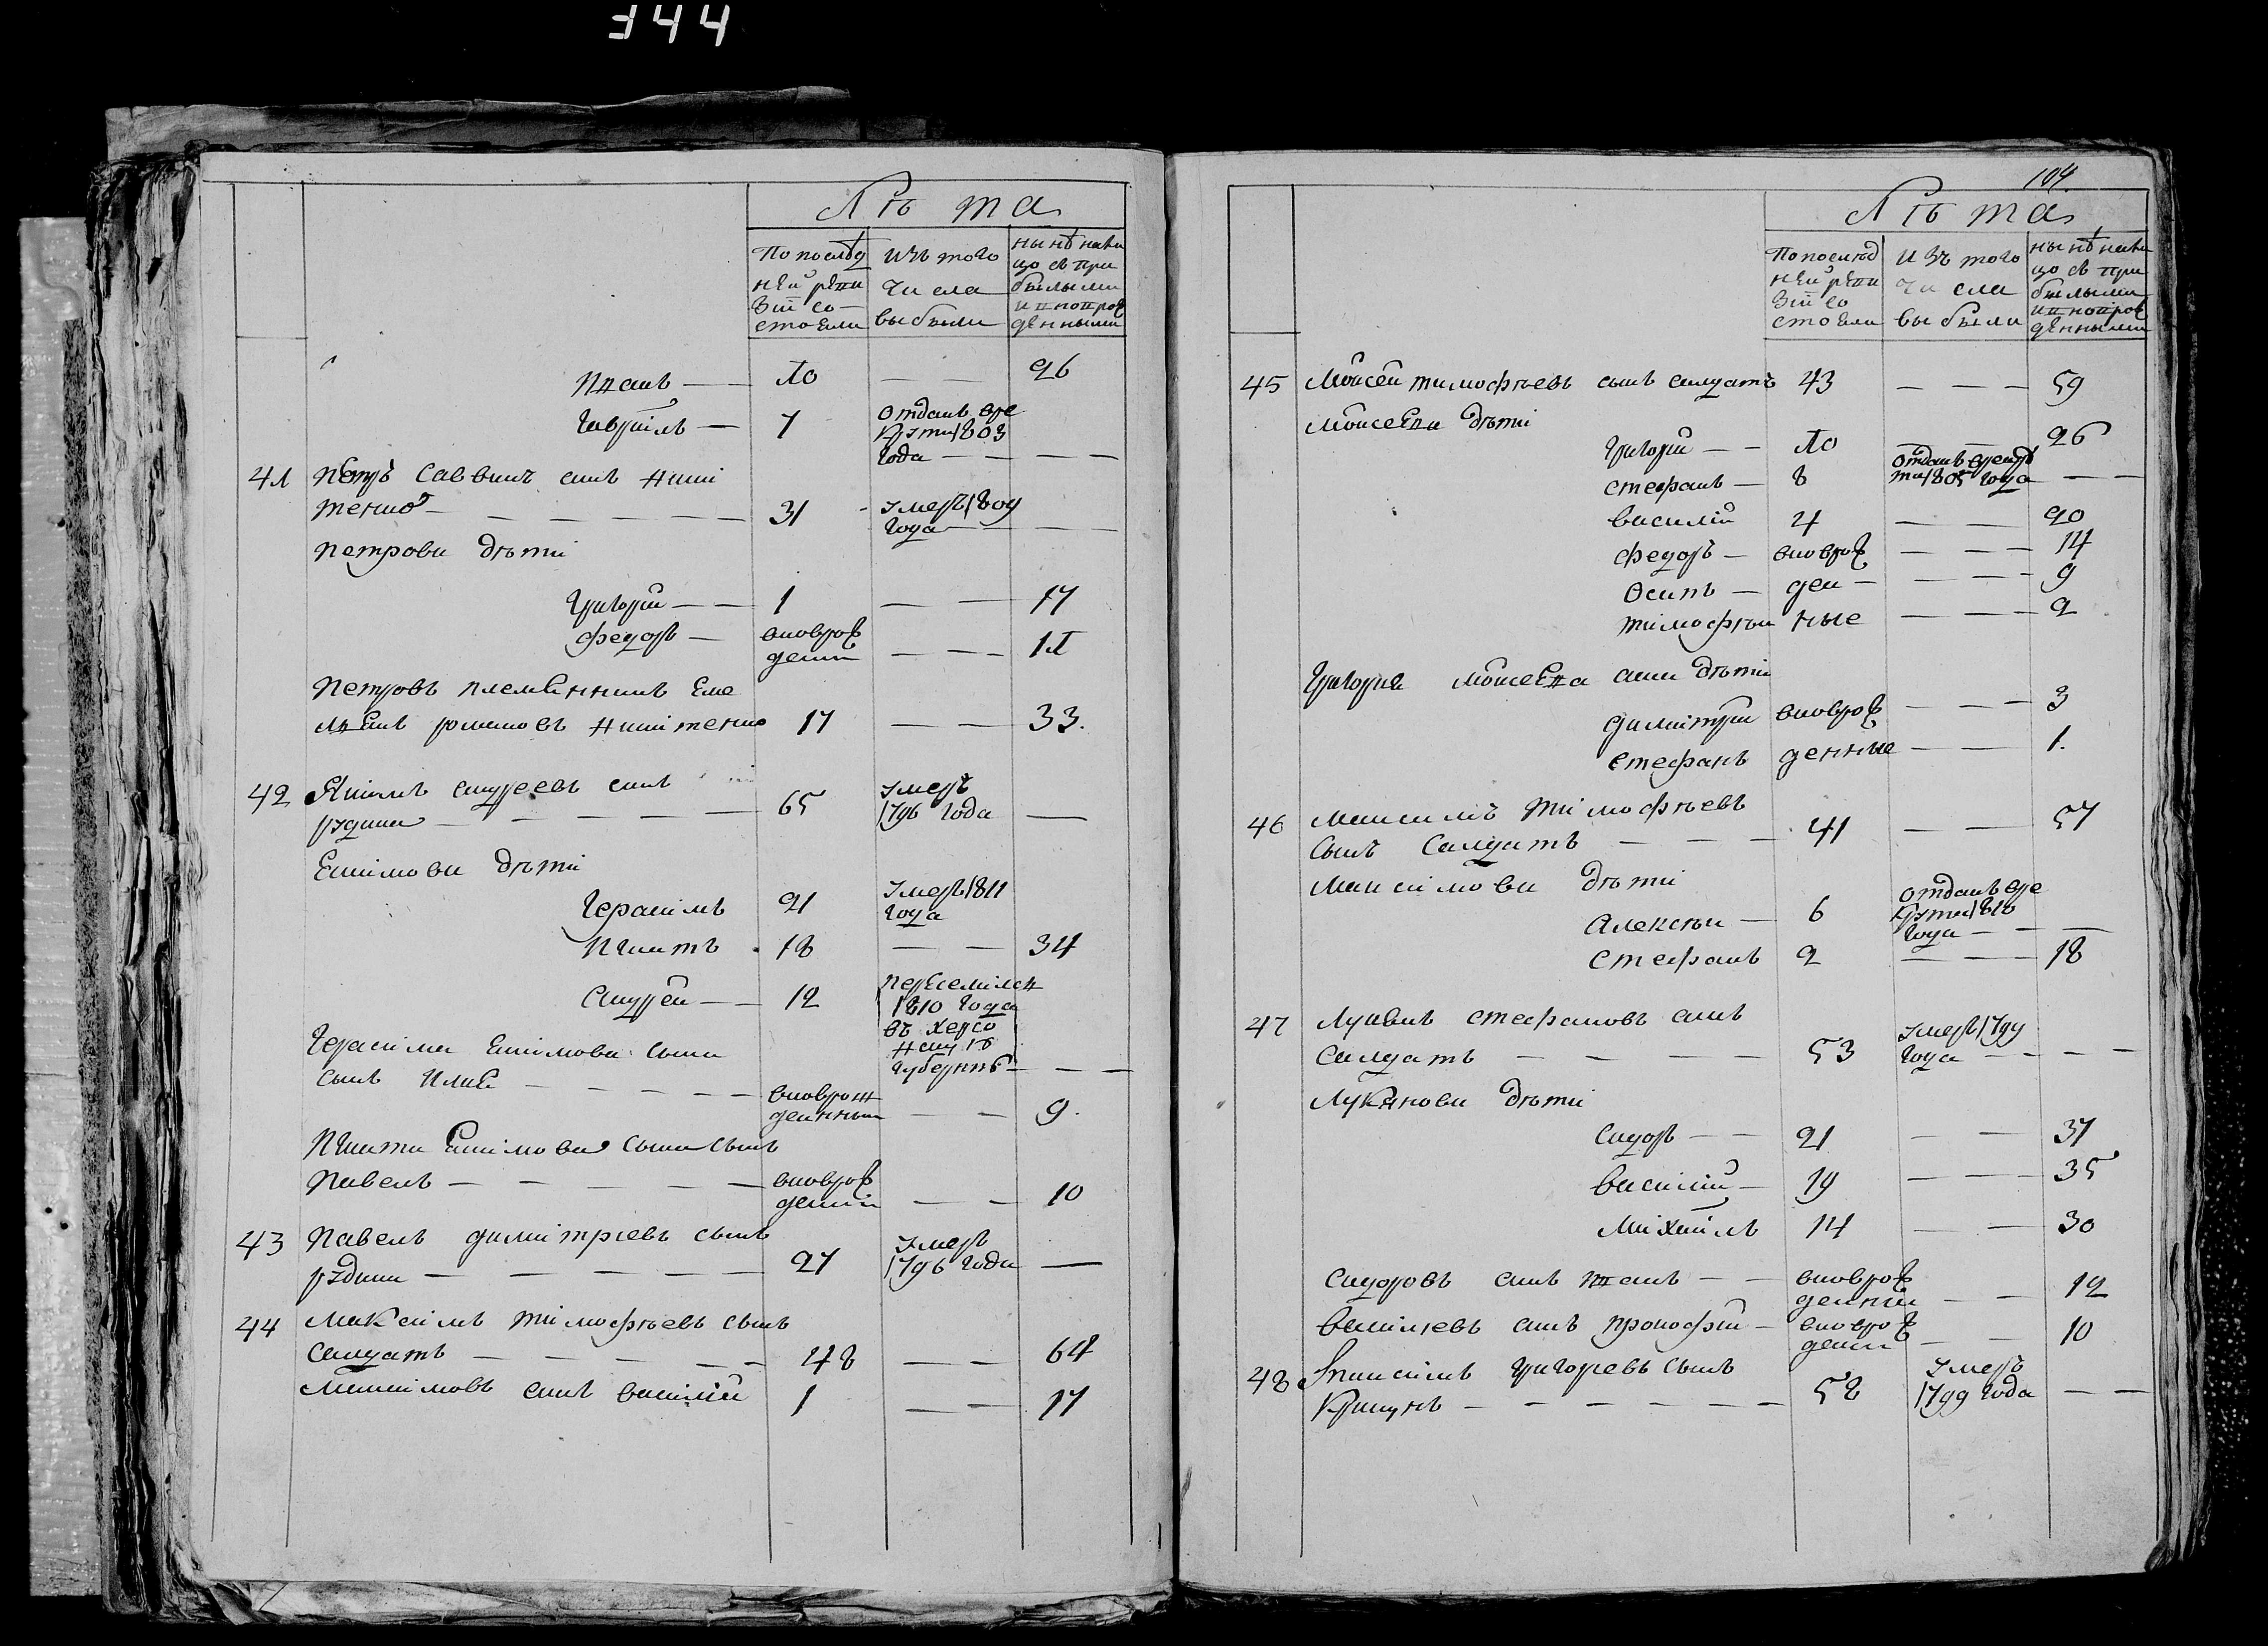 344
Лѣта
По послѣд
ней реви
зіи со
стояли
изъ того
числа
выбыли
нынѣ на ли
цо съ при
былыми
и новорож
денными
Иванъ — 10 — — 26
Гаврiилъ — 7
отданъ в ре
круты 1803
года — — —
41 Петръ Саввинъ сынъ
31 умеръ 1809
года — —
Петрови дѣти
Григорій — — 1 — — 17
Федоръ — новорож
денній — — — 15
Петровъ племенникъ Еме
льянъ романовъ 17 — — 33.
42 Якимъ Андреевъ сынъ
рудика — — — — 65 умеръ
1796 года —
Екимови дѣти
Герасимъ 21 умеръ 1811
года
Игнатъ 18 — — 34
Андрей — — 12 переселился
1810 года
въ херсо
нскую
губернію — — —
Герасима Екимова сына
сынъ Илія — — — — новорож
денный — — 9.
Игната Екимова сына сынъ
Павелъ — — — — — новорож
денній — — 10
43 Павелъ димитріевъ сынъ
рудика — — — — — 27 умеръ
1796 года —
44 Максимъ тимофѣевъ сынъ
Салдатъ — — — — — 48 — — 64
Максимовъ сынъ василій 1 — — 17
104
Лѣта
По послѣд
ней реви
зіи со
стояли
изъ того
числа
выбыли
нынѣ на ли
цо съ при
былыми
и новорож
денными
45 Моисей тимофѣевъ сынъ салдатъ 43 — — — 59
Моисеева дѣти
Григорій — — 10 — — 26
стефанъ — 8 отданъ в рекру
ты 1805 года — —
василій 4 — — 20
федоръ — новорож — — — 14
осипъ — ден — — — — 9
тимофѣй ные — — — 2
Григорія моисеева сына дѣти
димитрій новорож — — — 3
стефанъ денные — — 1.
46 Максимъ тимофѣевъ
сынъ Салдатъ — — — 41 — — 57
Максимови дѣти
Алексѣй — 6 отданъ в ре
круты 1812
года — — —
Стефанъ 2 — — 18
47 Лукянъ стефановъ сынъ
Салдатъ — — — — 53 умеръ 1799
года — — — —
Лукянови дѣти
Сидоръ — — 21 — — 37
василій — 19 — — — 35
михайлъ 14 — — 30
Сидоровъ сынъ иванъ — — новорож
денный — — 12
василіевъ сынъ прокофій — новорож
денній — — 10
48 Григорьевъ сынъ
— — — — — — 58 умеръ
1799 года — —